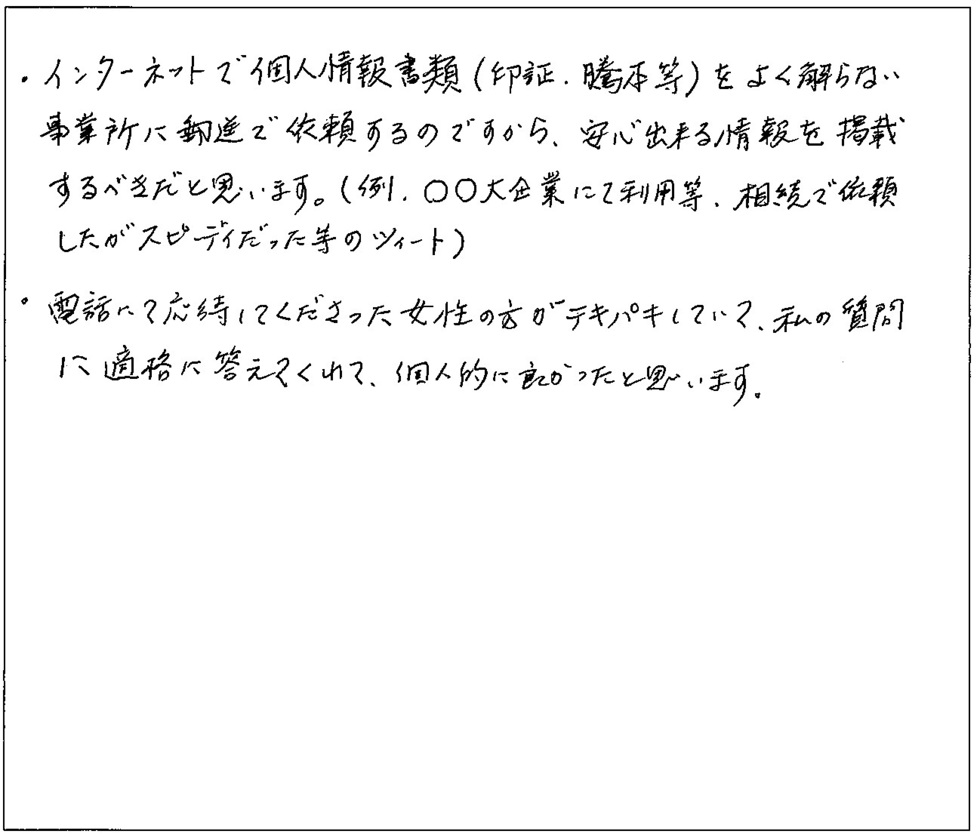 ・インターネットで個人情報書類(印証.謄本等)をよく解らない
事業所に郵送で依頼するのですから、安心出来る情報を掲載
するべきだと思います。(例.〇〇大企業にて利用等、相続で依頼
したがスピーディだった等のツィート)
・電話にて応待してくださった女性の方がテキパキしていて、私の質問
に適格に答えてくれて、個人的に良かったと思います。